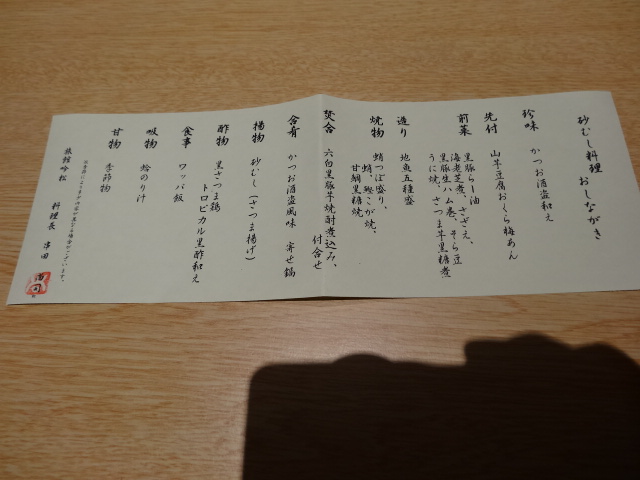 砂むし料理 おしながき
珍味 かつお酒盗和え
先付 山芋豆腐おくら梅あん
前菜 黒豚らー油
海老芝煮、さざえ、そら豆
黒豚生ハム巻、さつま芋黒糖煮
うに焼、
造り 地魚五種盛
焼物 蛸つぼ盛り、
蛸、鱧こが焼、
甘鯛黒糖焼
焚合 六白黒豚芋焼酎煮込み、
付合せ
合肴 かつお酒盗風味 寄せ鍋
揚物 砂むし(さつま揚げ)
酢物 黒さつま鶏
トロピカル黒酢和え
食事 ワッパ飯
吸物 蛤のり汁
甘物 季節物
旅館吟松 料理長 串田